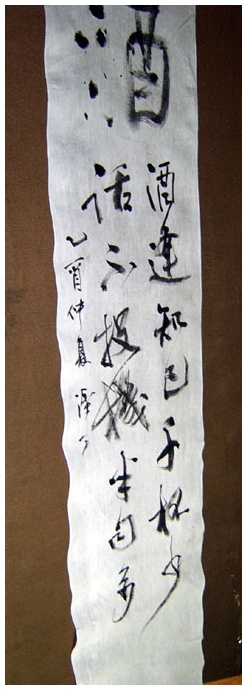 酒
酒逢知己千杯少
话不投機半句多
乙酉仲夏